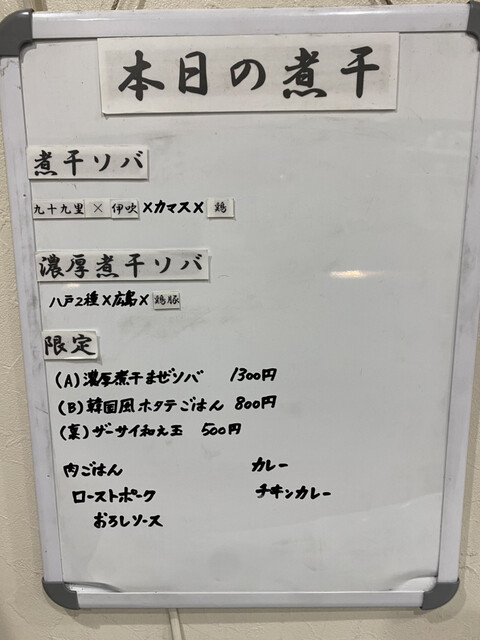 本日の煮干
煮干ソバ
九十九里×伊吹×カマス×鶏
濃厚煮干ソバ
八戸2種×広島×鶏豚
限定
(A)濃厚煮干まぜソバ 1300円
(B)韓国風ホタテごはん 800円
(裏)ザーサイ和え玉 500円
肉ごはん カレー
ローストポーク チキンカレー
おろしソース